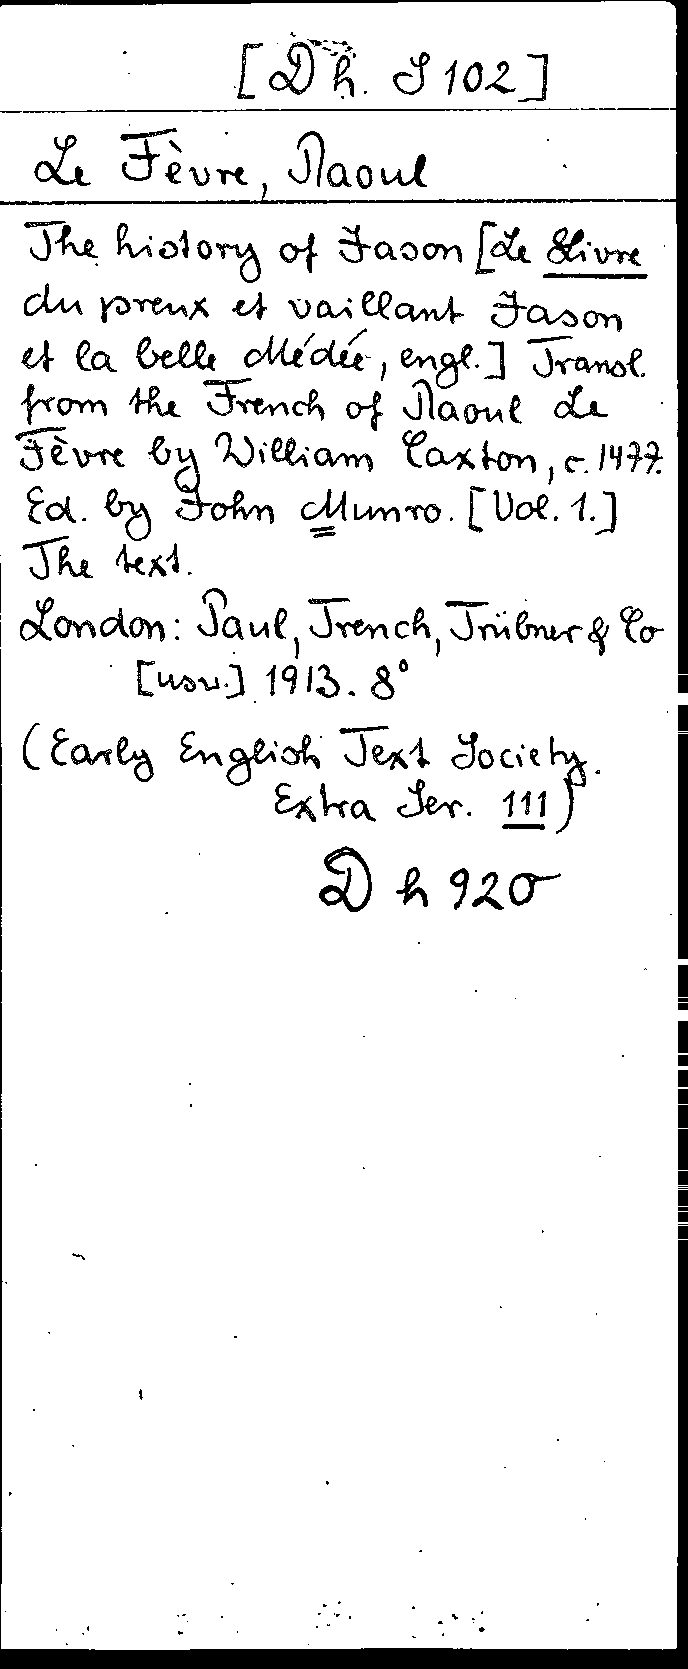 [Dh. S 102]
Le Fèvre, Raoul
The history of Jason [Le Livre
du preux et vaillant Jason
et la belle Médée, engl.] Transl.
from the French of Raoul Le
Fèvre by William Caxton, c. 1477.
Ed. by John Munro. [Vol. 1.]
The text.
London: Paul, Trench, Trübner & Co
[usw.] 1913. 8°
(Early English Text Society.
Extra Ser. 111)
Dh 920